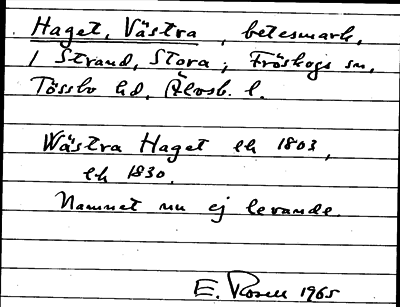 Haget, Västra, betesmark,
i Strand, Stora; Fröskogs sn,
Tössbo hd, Älvsb. l.
Wästra Haget ek 1803,
ek 1830.
Namnet nu ej levande.
E. Rosell 1965